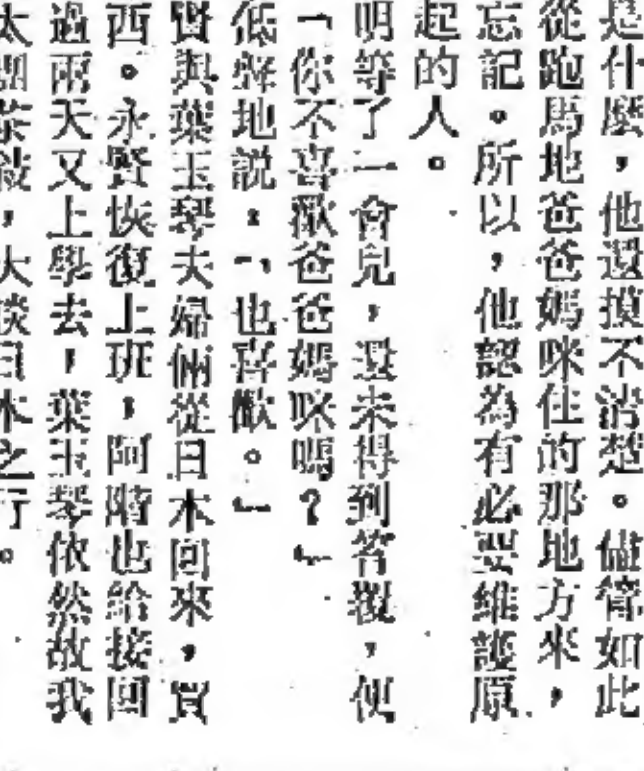 是什麼，他還摸不清楚。儘管如此
從跑馬地爸爸媽咪住的那地方來，
忘記。所以，他認為有必要維護原
起的人。
明等了一會兒，還未得到答覆，便
「你不喜歡爸爸媽咪嗎？」
低聲地説：「也喜歡。」
賢與葉玉琴夫婦倆從日本回來，買
西。永賢恢復上班，阿階也給接回
過兩天又上學去，葉玉琴依然故我
太開茶敍，大談日本之行。